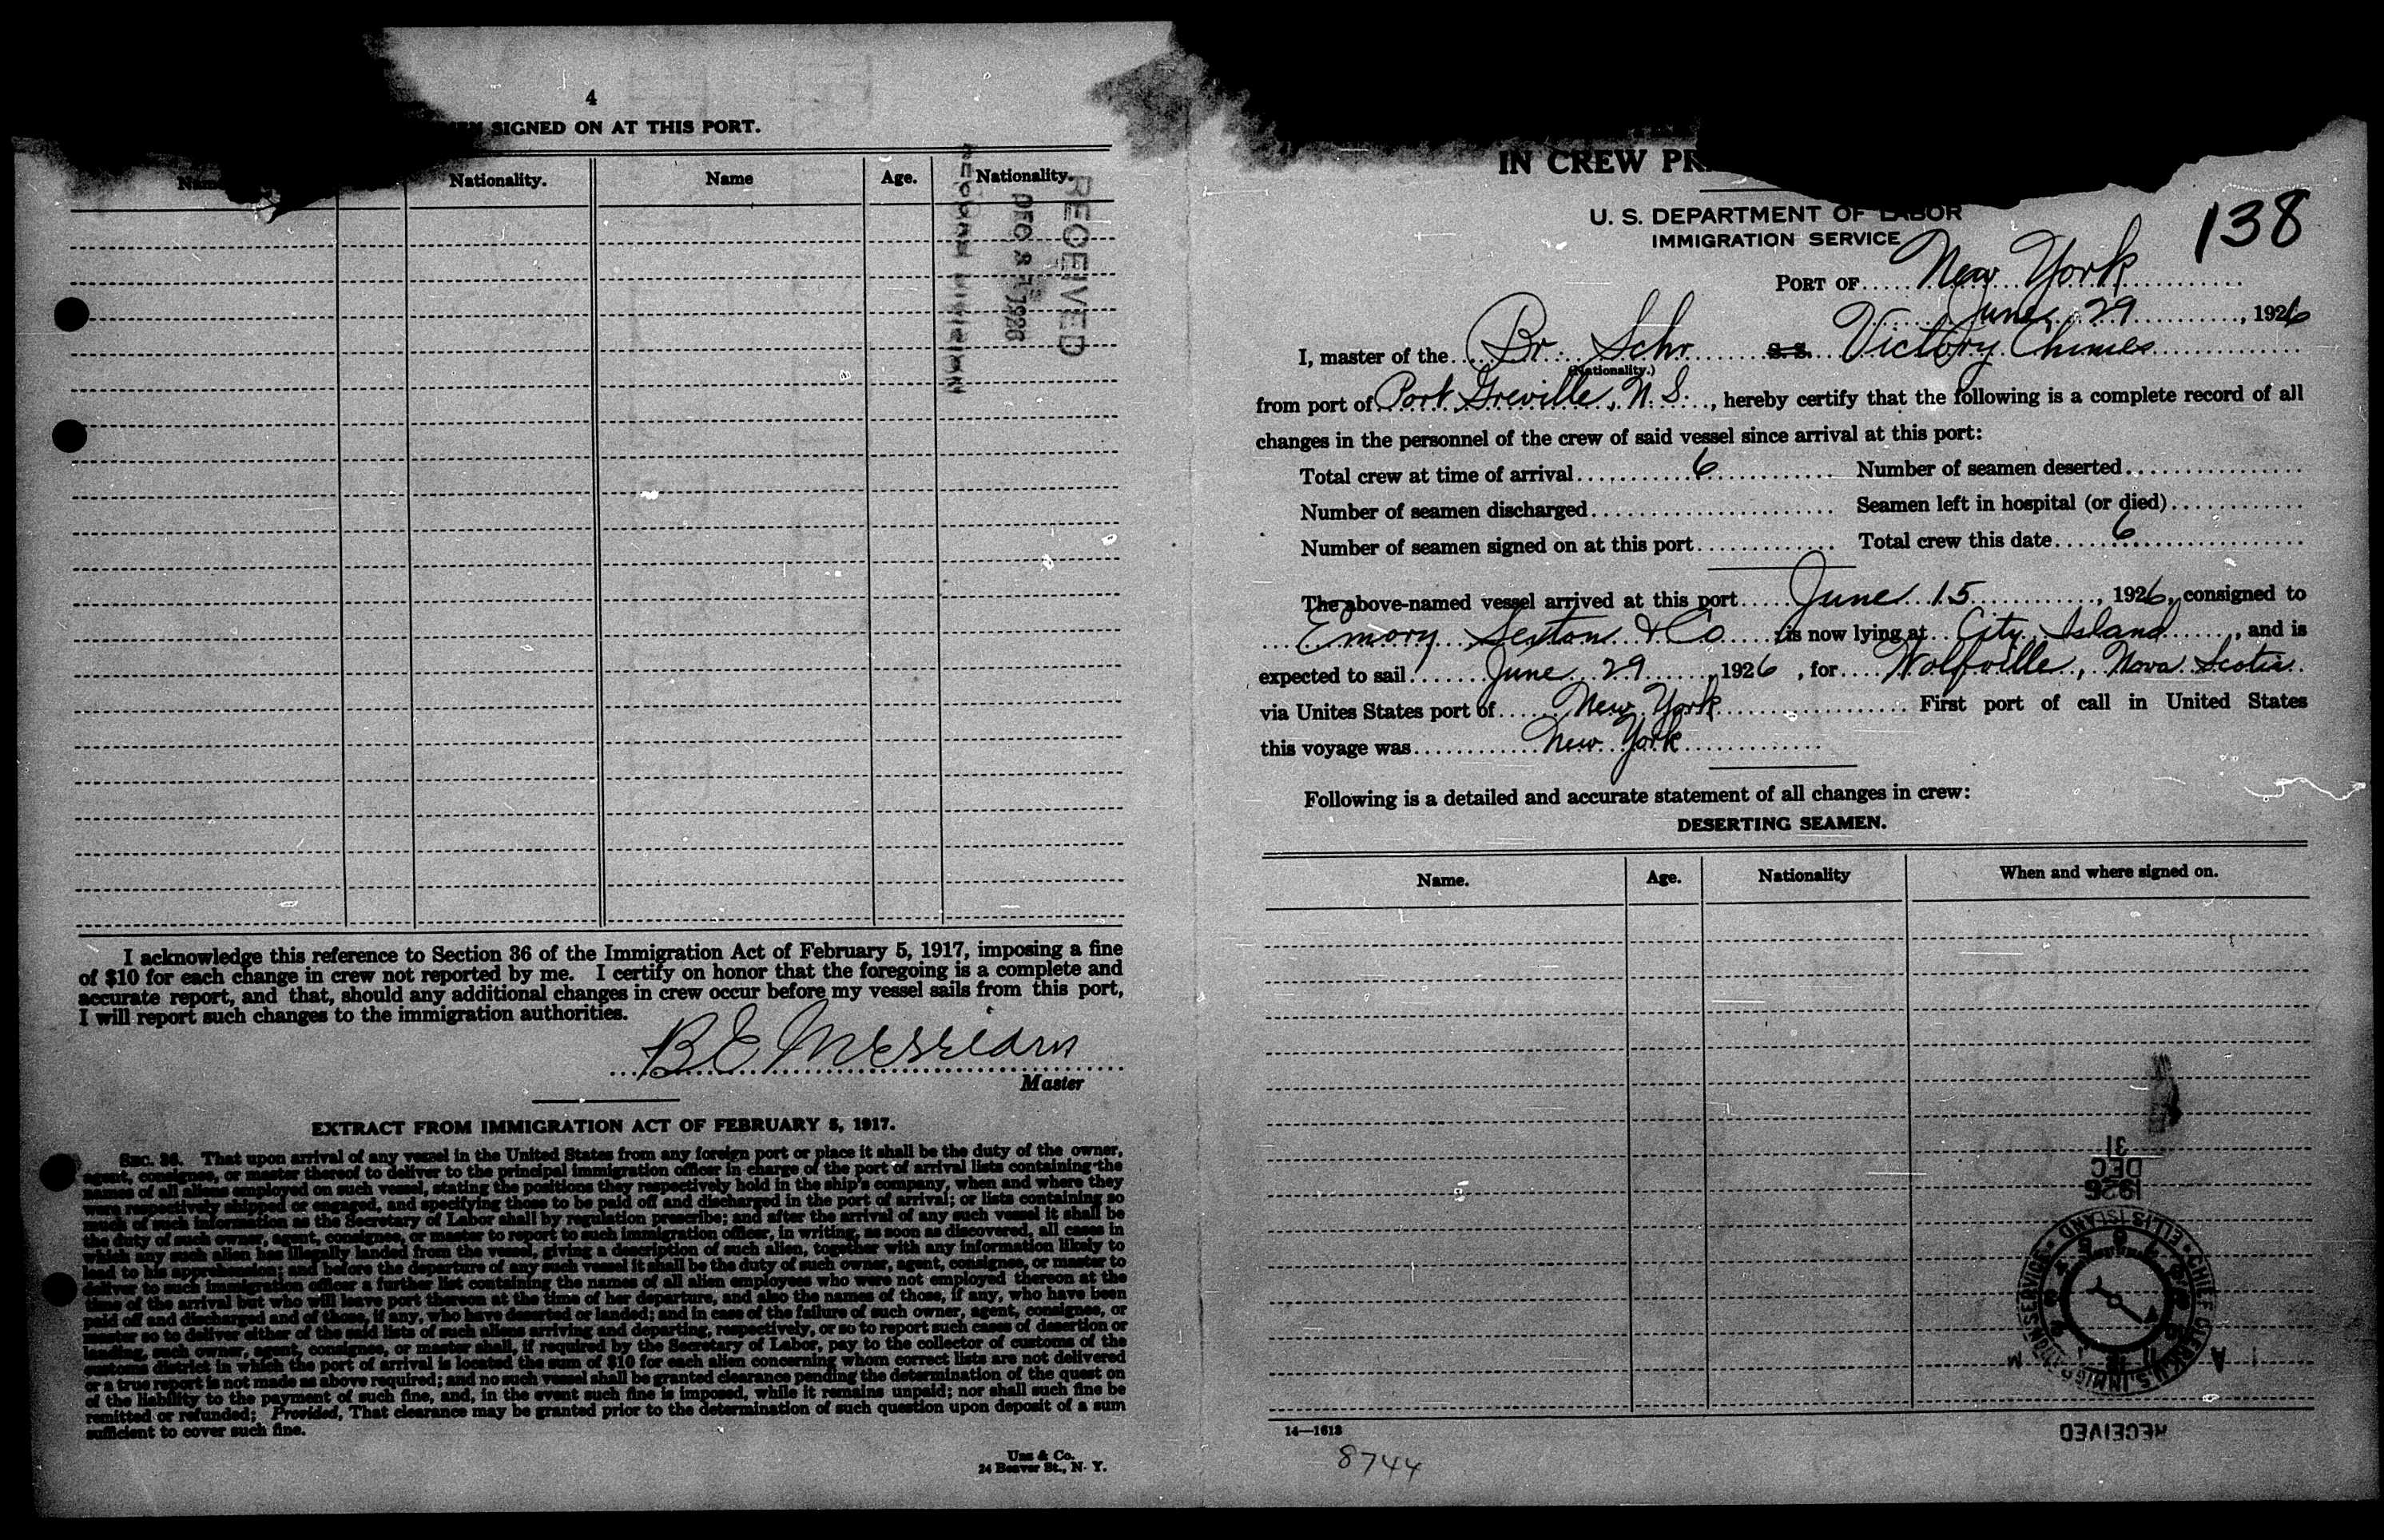 4
SIGNED ON AT THIS PORT.
Nationality. Name Age. Nationality.
RECEIVED
DEC 1926
I acknowledge this reference to Section 36 of the Immigration Act of February 5, 1917, imposing a fine
of $10 for each change in crew not reported by me. I certify on honor that the foregoing is a complete and
accurate report, and that, should any additional changes in crew occur before my vessel sails from this port,
I will report such changes to the immigration authorities.
B E
Master
EXTRACT FROM IMMIGRATION ACT OF FEBRUARY 5, 1917.
SEC. 36. That upon arrival of any vessel in the United States from any foreign port or place it shall be the duty of the owner,
agent, consignee, or master thereof to deliver to the principal immigration officer in charge of the port of arrival lists containing the
names of all aliens employed on such vessel, stating the positions they respectively hold in the ship's company, when and where they
were respectively shipped or engaged, and specifying those to be paid off and discharged in the port of arrival; or lists containing so
much of such information as the Secretary of Labor shall by regulation prescribe; and after the arrival of any such vessel it shall be
the duty of such owner, agent, consignee, or master to report to such immigration officer, in writing, as soon as discovered, all cases in
which any such alien has illegally landed from the vessel, giving a description of such alien, together with any information likely to
lead to his apprehension; and before the departure of any such vessel it shall be the duty of such owner, agent, consignee, or master to
deliver to such immigration officer a further list containing the names of all alien employees who were not employed thereon at the
time of the arrival but who will leave port thereon at the time of her departure, and also the names of those, if any, who have been
paid off and discharged and of those, if any, who have deserted or landed; and in case of the failure of such owner, agent, consignee, or
master so to deliver either of the said lists of such aliens arriving and departing, respectively, or so to report such cases of desertion or
landing, such owner, agent, consignee, or master shall, if required by the Secretary of Labor, pay to the collector of customs of the
customs district in which the port of arrival is located the sum of $10 for each alien concerning whom correct lists are not delivered
or a true report is not made as above required; and no such vessel shall be granted clearance pending the determination of the quest on
of the liability to the payment of such fine, and, in the event such fine is imposed, while it remains unpaid; nor shall such fine be
remitted or refunded; Provided, That clearance may be granted prior to the determination of such question upon deposit of a sum
sufficient to cover such fine.
& Co.
24 Beaver St., N. Y.
IN CREW
U. S. DEPARTMENT OF LABOR
IMMIGRATION SERVICE
138
PORT OF New York
June 29, 1926
I, master of the Br. Schr S.S. Victory Chimes
(Nationality.)
from port of Port Greville, N. S., hereby certify that the following is a complete record of all
changes in the personnel of the crew of said vessel since arrival at this port:
Total crew at time of arrival 6 Number of seamen deserted
Number of seamen discharged Seamen left in hospital (or died)
Number of seamen signed on at this port Total crew this date 6
The above-named vessel arrived at this port June 15, 1926, consigned to
Emory Sexton & Co is now lying at City Island, and is
expected to sail June 29, 1926, for Wolfville, Nova Scotia
via Unites States port of New York First port of call in United States
this voyage was New York
Following is a detailed and accurate statement of all changes in crew:
DESERTING SEAMEN.
Name. Age. Nationality When and where signed on.
31
DEC
1926
ELLIS ISLAND CHIEF CLERK U.S. IMMIGRATION SERVICE
RECEIVED
14—1613
8744